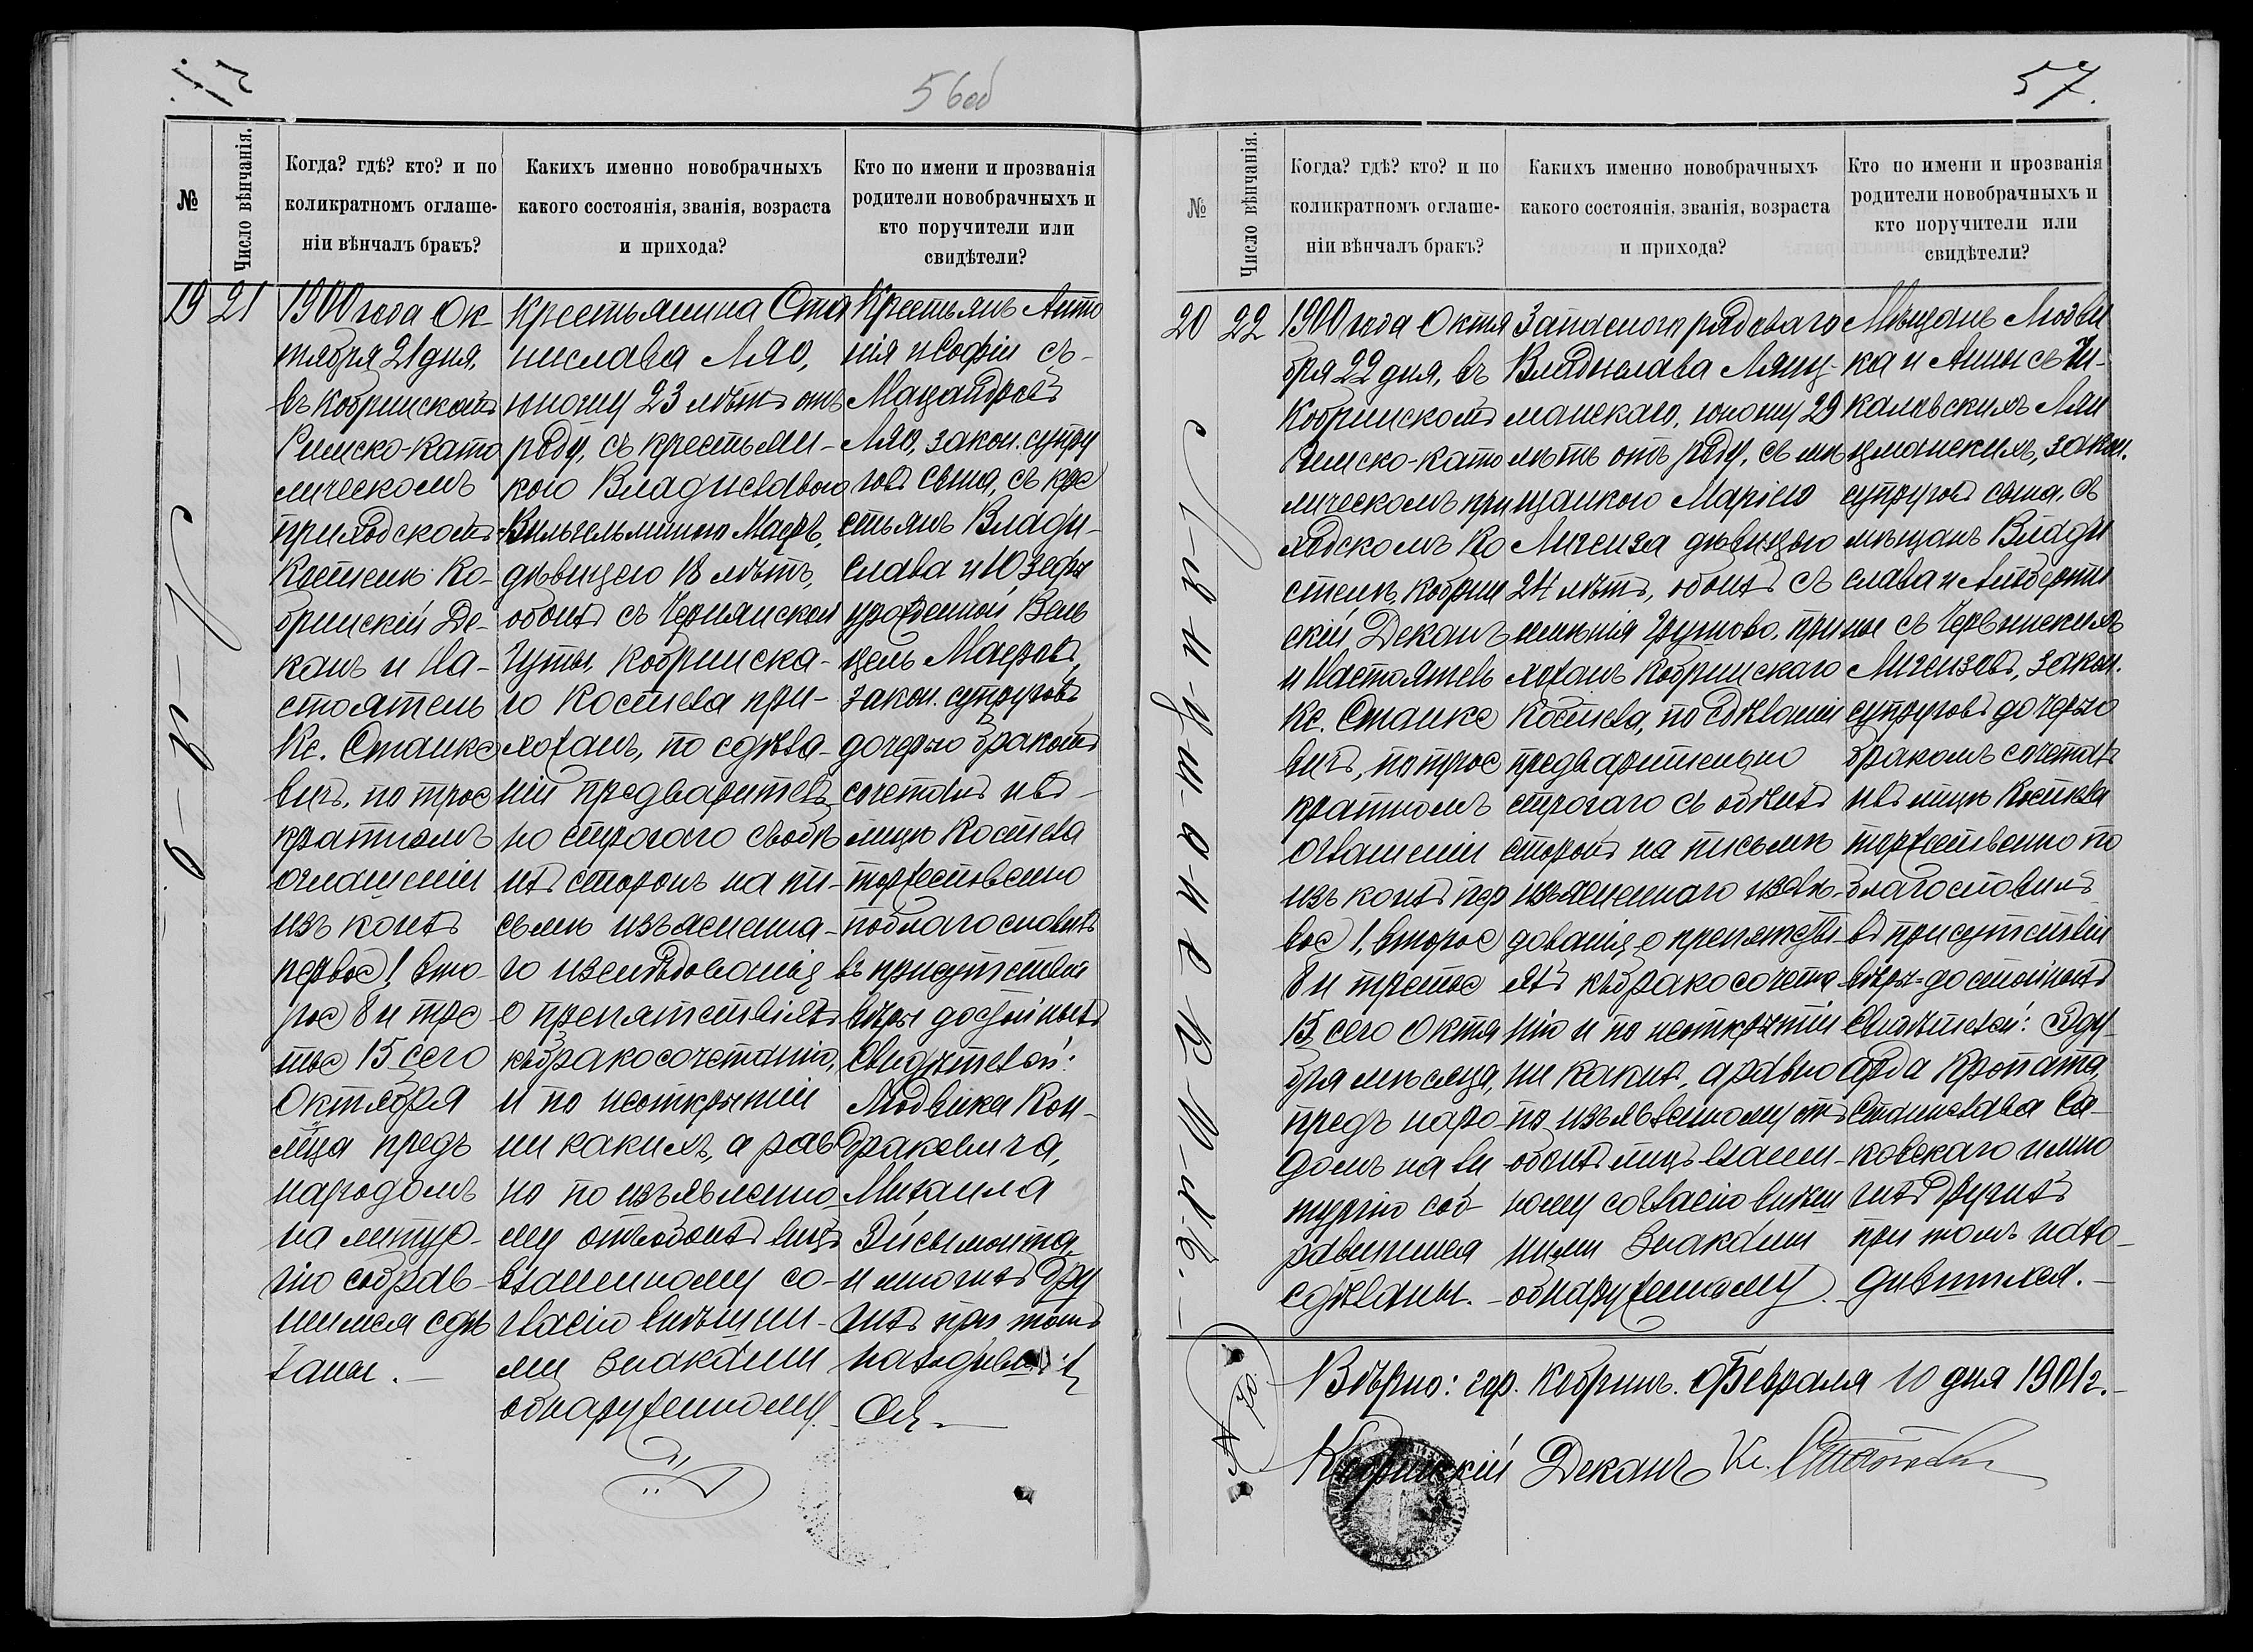 56об
№
Число вѣнчанія.
Когда? гдѣ? кто? и по
коликратномъ оглаше-
ніи вѣнчалъ бракъ?
Какихъ именно новобрачныхъ
какого состоянія, званія, возраста
и прихода?
Кто по имени и прозванія
родители новобрачныхъ и
кто поручители или
свидѣтели?
19
21
1900 года Ок-
тября 21 дня,
въ Кобринскомъ
Римско-като
лическомъ
приходскомъ
Костелѣ Ко-
бринскій Де-
канъ и На-
стоятель
Кс. Станке
вичъ, по трое
кратномъ
оглашеніи
изъ коихъ
первое 1, вто-
рое 8 и тре
тье 15 сего
Октября
мца предъ
народомъ
на литур-
гію собрав-
шимся сдѣ
ланы. —
Крестьянина Ста
нислава Ляо,
юношу 23 лѣтъ отъ
роду, съ крестьян-
кою Владиславою
Вильгельминою Маеръ,
дѣвицею 18 лѣтъ,
обоихъ съ Чернянской
Гуты, Кобринска-
го Костела при-
хожанъ, по сдѣла-
ніи предваритель
но строгого съ обѣ
ихъ сторонъ на пи-
сьмѣ изъясненна-
го изслѣдованія
о препятствіяхъ
къ бракосочетанію,
и по неоткрытіи
ни какихъ, а рав
но по изъявленно
му отъ обоихъ лицъ
взаимному со-
гласію внѣшни-
ми знаками
обнаруженному.
Крестьянъ Анто
нія и Софіи съ-
Ляо, закон. супру
говъ сына, съ кре
стьянъ Влади-
слава и Юзефы
урожденной Вен
цель Маеровъ,
закон. супруговъ
дочерью бракомъ
сочеталъ и въ-
лицѣ Костела
торжественно
поблагословилъ
въ присутствіи
вѣры достойныхъ
Свидѣтелей:
Людвика Кон-
дракевича,
Михаила
и многихъ дру
гихъ при томъ
находивш
ся. —
57.
№
Число вѣнчанія.
Когда? гдѣ? кто? и по
коликратномъ оглаше-
ніи вѣнчалъ бракъ?
Какихъ именно новобрачныхъ
какого состоянія, званія, возраста
и прихода?
Кто по имени и прозванія
родители новобрачныхъ и
кто поручители или
свидѣтели?
20
22
1900 года Октя
бря 22 дня, въ
Кобринскомъ
Римско-като
лическомъ при
ходскомъ Ко
стелѣ Кобрин
скій Деканъ
и Настоятель
Кс. Станке
вичъ, по трое
кратномъ
оглашеніи
изъ коихъ пер
вое 1, второе
8 и третье
15 сего Октя
бря мѣсяца,
предъ наро-
домъ на ли
тургію соб-
равшимся
сдѣланы. —
Запаснаго рядоваго
Владислава Лянц-
манскаго, юношу 29
лѣтъ отъ роду, съ мѣ
щанкою Маріею
Лигенза дѣвицею
24 лѣтъ, обоихъ съ
имѣнія Грушово, при
хожанъ Кобринскаго
Костела, по сдѣланіи
предварительно
строгаго съ обѣихъ
сторонъ на письмѣ
изъясненнаго изслѣ-
дованія о препятстві-
яхъ къ бракосочета
нію и по неоткрытіи
ни какихъ, а равно
по изъявленному отъ
обоихъ лицъ взаим-
ному согласію внѣш
ними знаками
обнаруженному.
Мѣщанъ Людви
ка и Анны съ Чи-
каловскихъ Лян
цманскихъ, закон.
супруговъ сына, съ
мѣщанъ Влади
слава и Альберти
ны съ Червинскихъ
Лигензовъ, закон.
супруговъ дочерью
бракомъ сочеталъ
и въ лицѣ Костела
торжественно по
благословилъ
въ присутствіи
вѣры-достойныхъ
Свидѣтелей: Эду-
арда Кропата,
Станислава Са-
ковскаго и мно
гихъ другихъ
при томъ нахо-
дившихся. —
№ 70.
Вѣрно: гор. Кобринъ. Февраля 10 дня 1901 г. —
Кобринскій Деканъ Кс. Станкевичъ